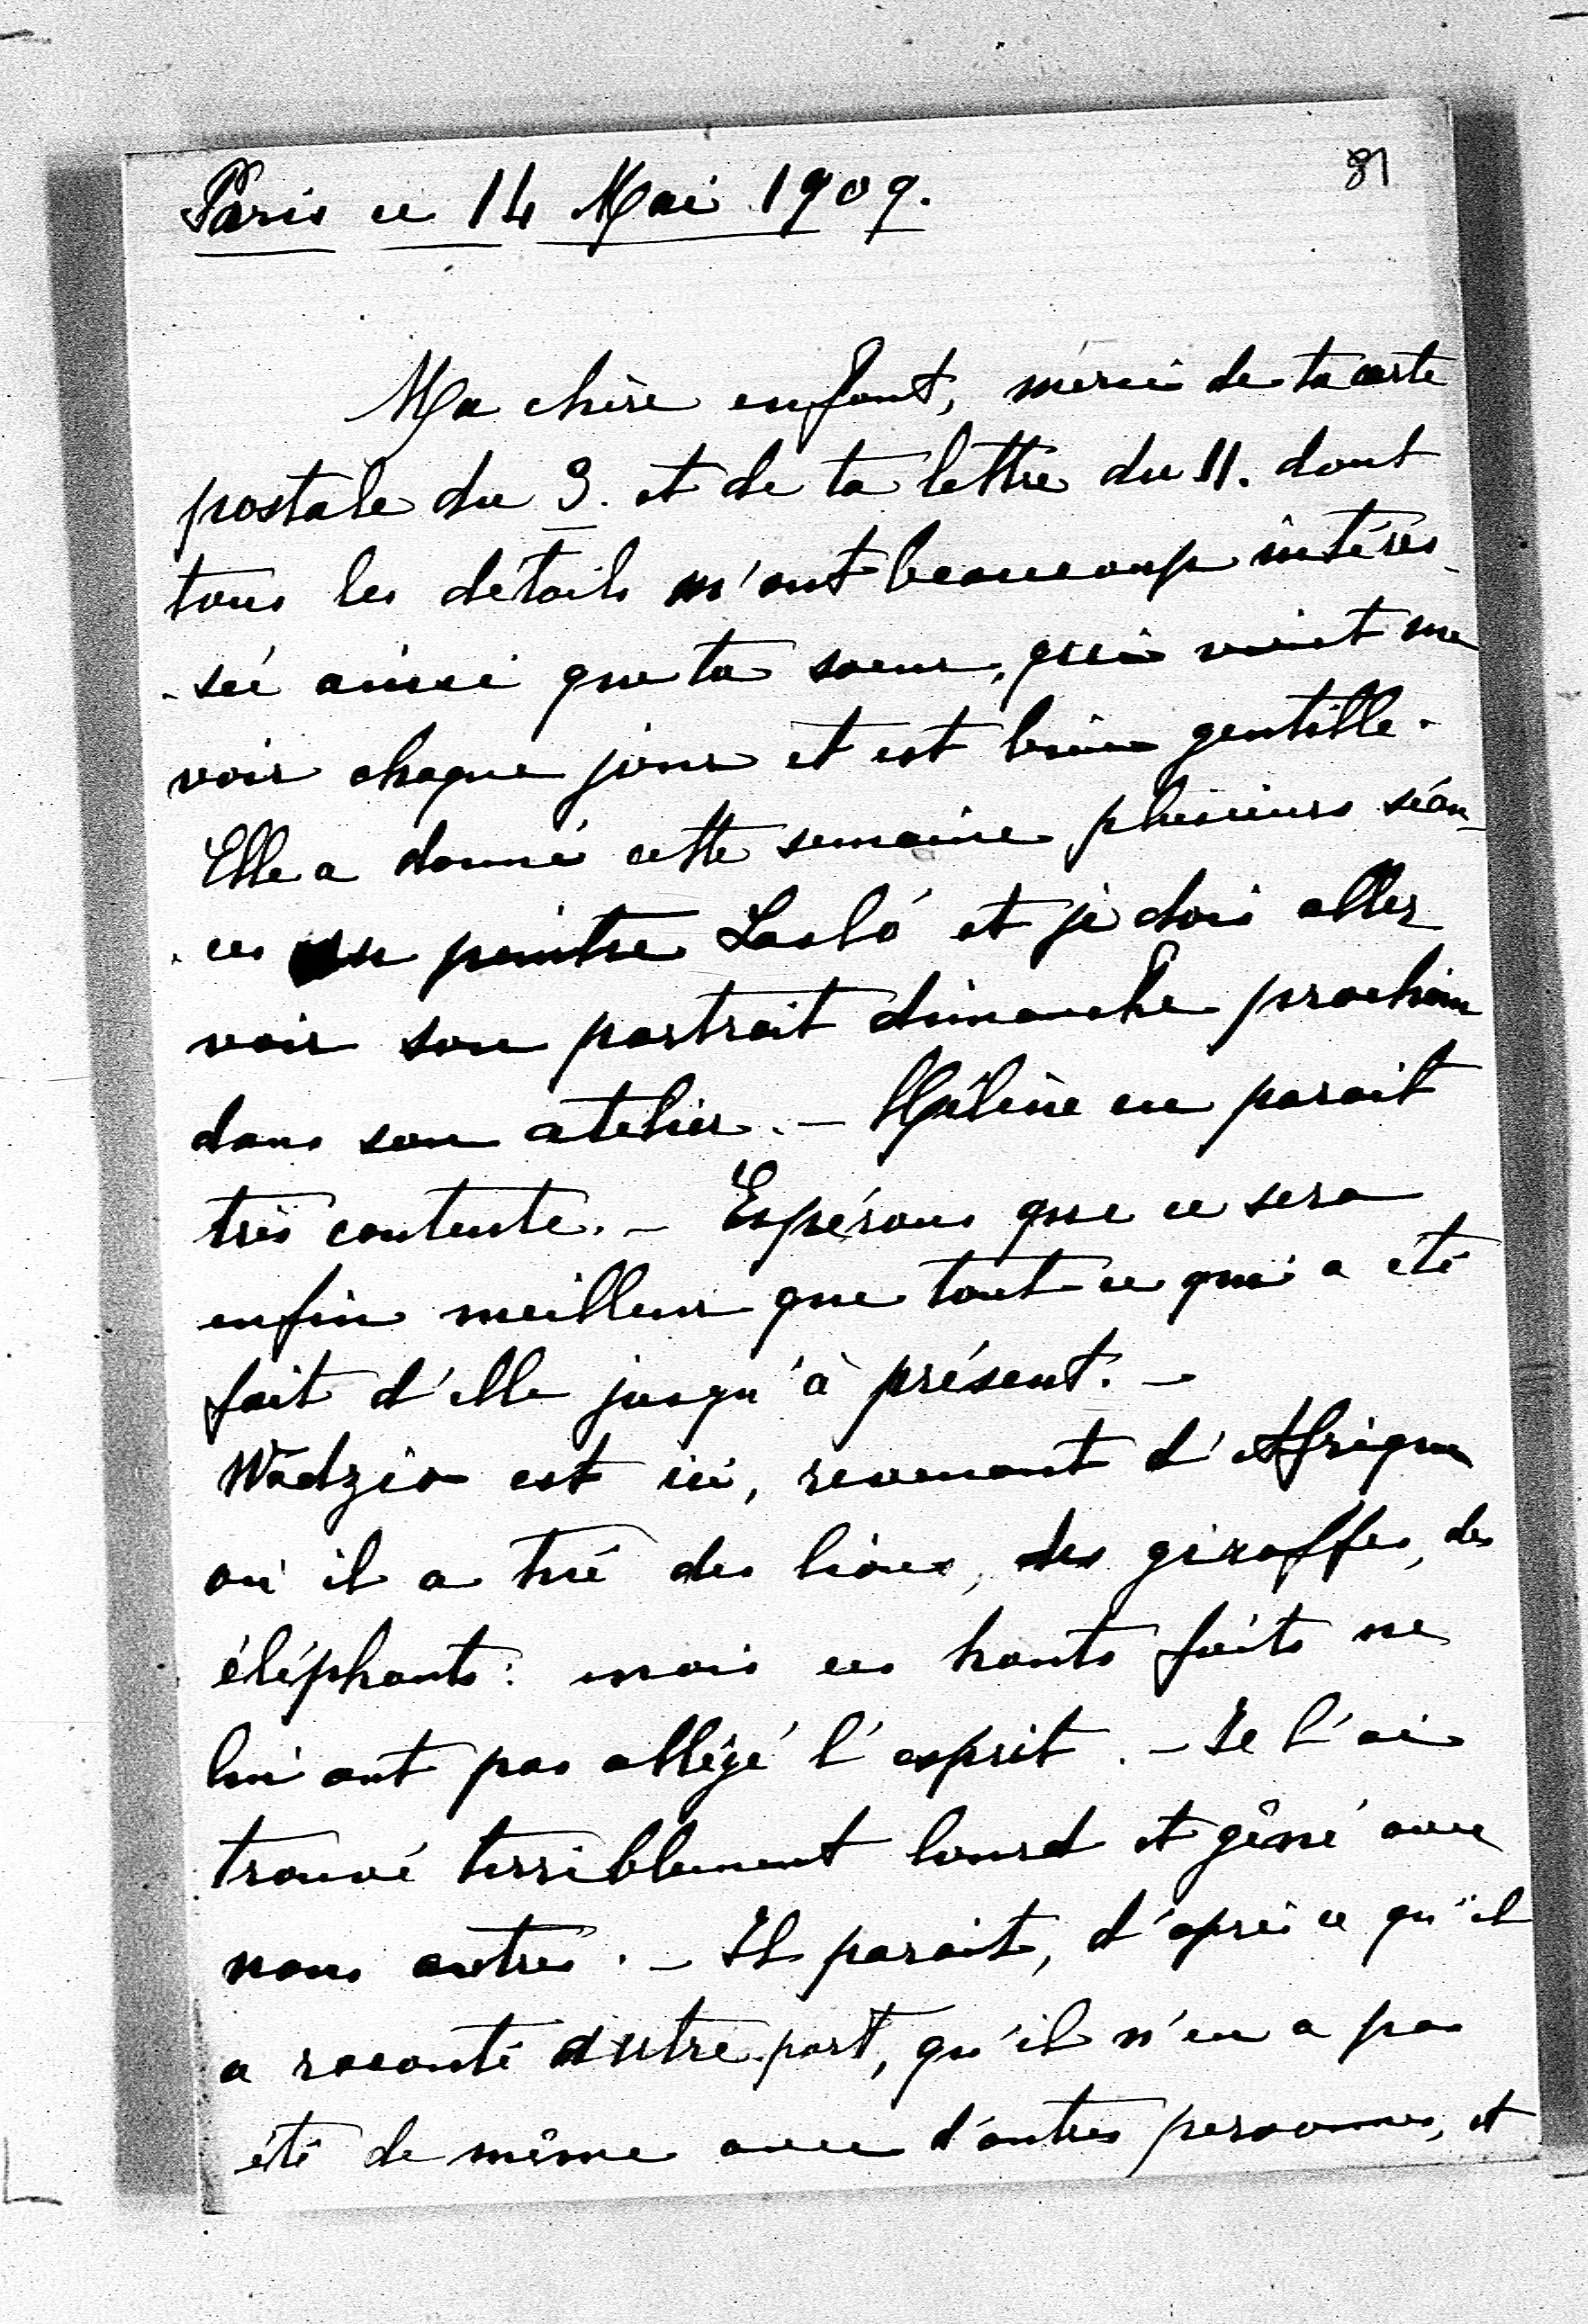 81
Paris ce 14 Mai 1909.
Ma chère enfant, merci de ta carte
postale du 3. et de ta lettre du 11. dont
tous les détails m'ont beaucoup intéres-
-sée ainsi que ta soeur, qui vient me
voir chaque jour et est bien gentille.
Elle a donné cette semaine plusieurs séan-
-ces au peintre Lasló et je dois aller
voir son portrait dimanche prochain
dans son atelier. — Hélène en parait
très contente. — Espérons que ce sera
enfin meilleur que tout ce qui a été
fait d'elle jusqu'à présent. —
Wadzio est ici, revenant d'Afrique
où il a tué des lions, des giraffes, des
éléphants: mais ces hauts faits ne
lui ont pas allégé l'esprit. — Je l'ai
trouvé terriblement lourd et gêné avec
nous autres. — Il parait, d'après ce qu'il
a raconté autre part, qu'il n'en a pas
été de même avec d'autres personnes, et